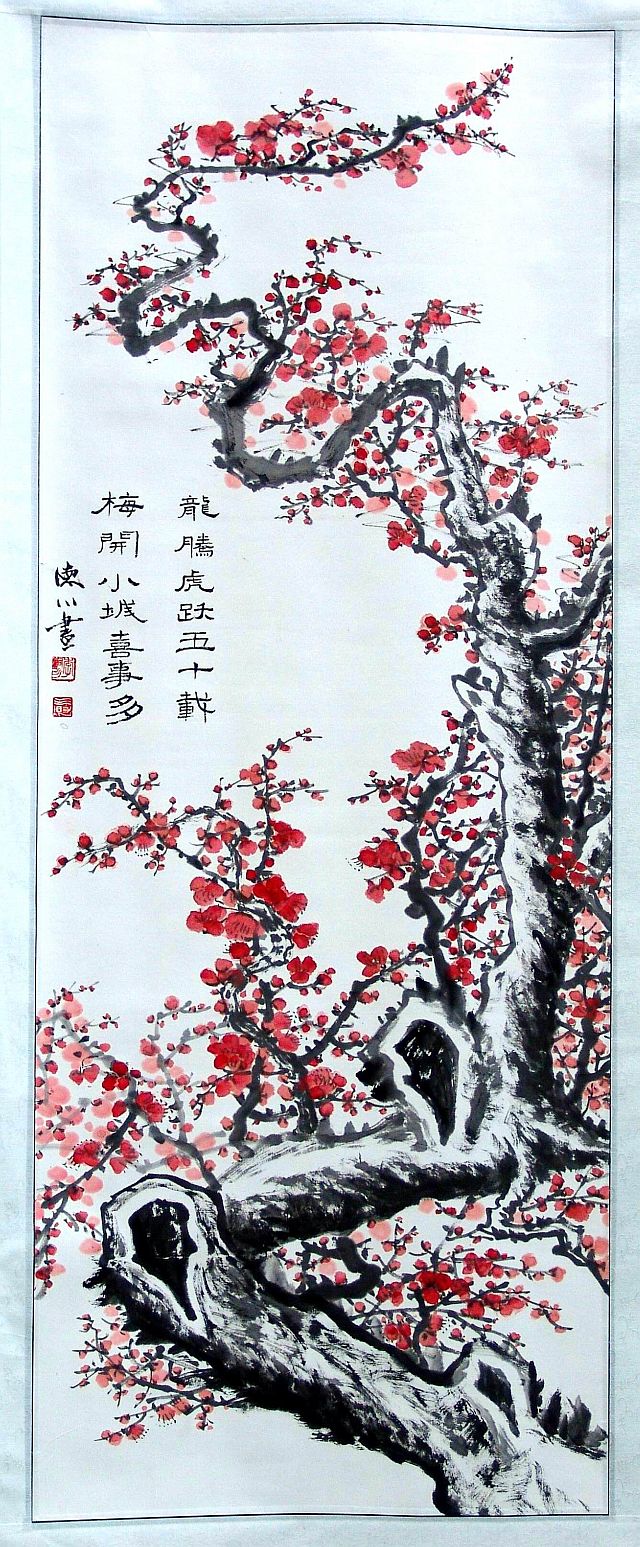 龍騰虎跃五十載
梅開小城喜事多
德川畫